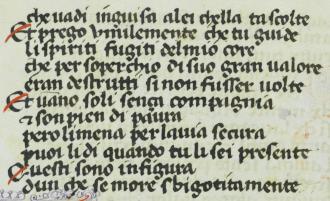 che uadi inguisa alei chella tascolte
Et prego vmilemente che tu guide
li spiriti fugiti del mio core
che per soperchio di suo gran ualore
eran destrutti si non fusser uolte
Et uano soli sença compagnia
⁊ son pien di paura
pero li mena per lauia secura
puoi li di quando tu li sei presente
Questi sono in figura
dun che se more sbigotitamente